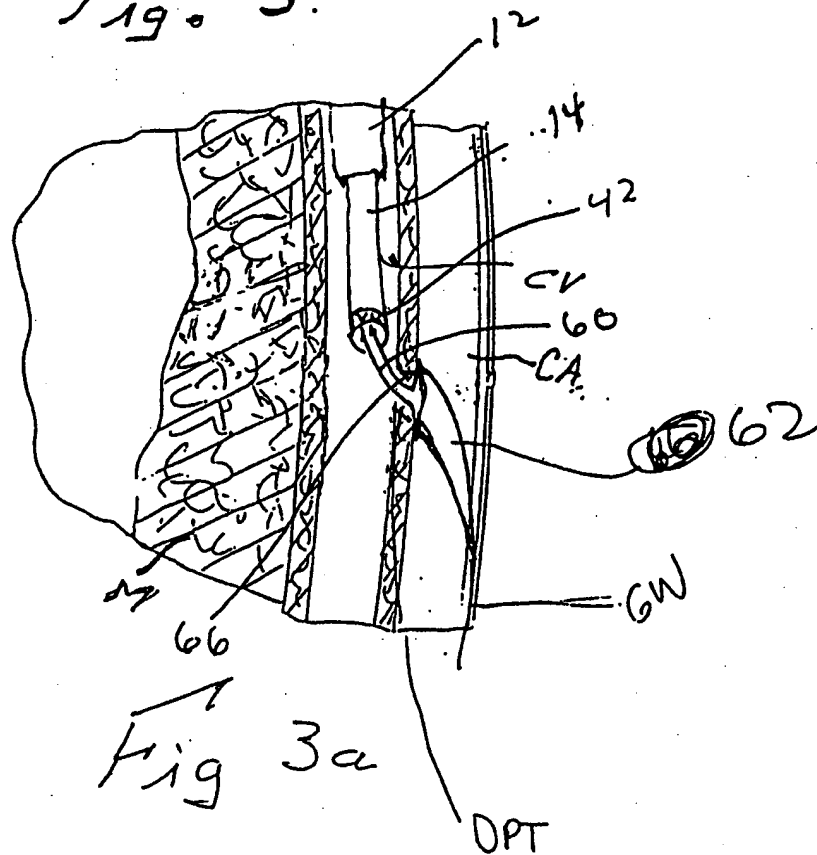 Fig. 3.
12
14
42
CV
60
CA
62
GW
66
Fig 3a
DPT